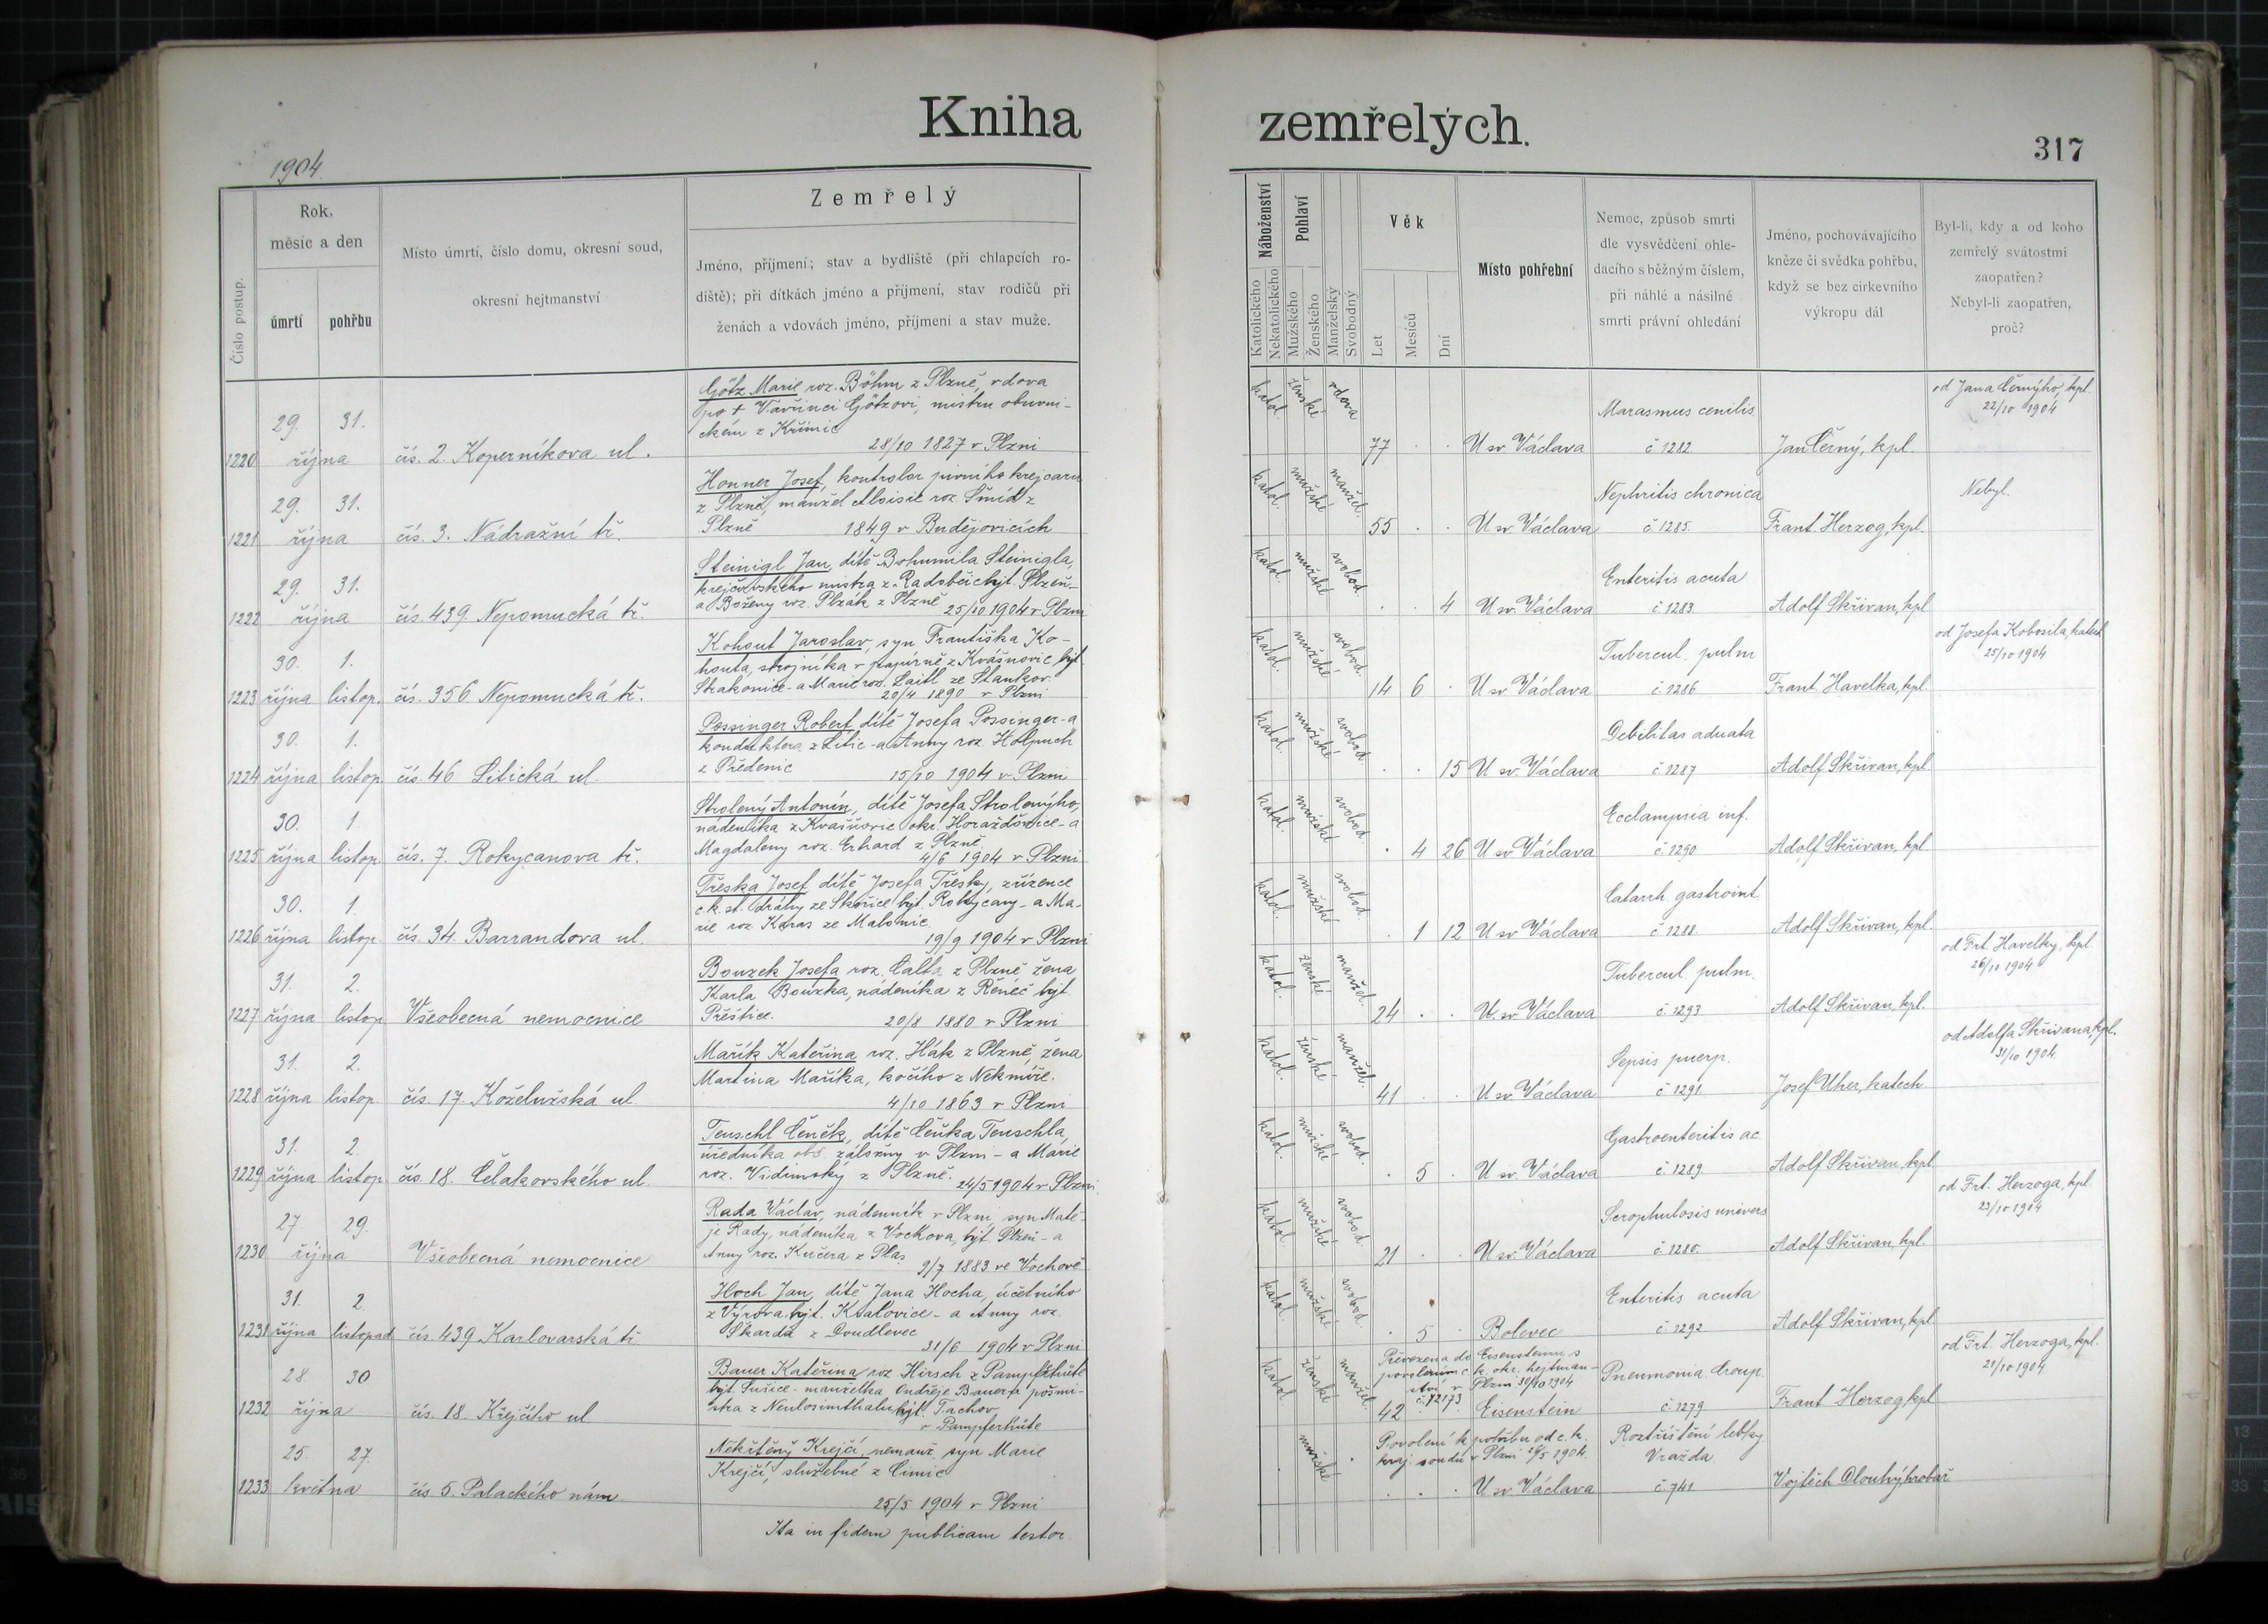 Kniha zemřelých.
317
1904.
Číslo postup.
Rok, měsíc a den
úmrtí
pohřbu
Místo úmrtí, číslo domu, okresní soud,
okresní hejtmanství
Zemřelý
Jméno, příjmení; stav a bydliště (při chlapcích ro-
diště); při dítkách jméno a příjmení, stav rodičů při
ženách a vdovách jméno, příjmení a stav muže.
Náboženství
Katolického
Nekatolického
Pohlaví
Mužského
Ženského
Manželský
Svobodný
Věk
Let
Měsíců
Dní
Místo pohřební
Nemoc, způsob smrti
dle vysvědčení ohle-
dacího s běžným číslem,
při náhlé a násilné
smrti právní ohledání
Jméno, pochovávajícího
kněze či svědka pohřbu,
když se bez církevního
výkropu dál
Byl-li, kdy a od koho
zemřelý svátostmi
zaopatřen?
Nebyl-li zaopatřen,
proč?
1220 29. 31. října
čís. 2. Koperníkova ul.
Götz Marie roz. Böhm z Plzně, vdova
po † Vavřinci Götzovi, mistru obuvni-
ckém z Křimic
28/10 1827 v Plzni
katol. ženské vdova
77 . .
U sv. Václava
Marasmus cenilis
č 1282
Jan Černý, kpl.
od Jana Černýho, kpl.
22/10 1904
1221 29. 31. října
čís. 3. Nádražní tř.
Honner Josef, kontrolor pivního krejcaru
z Plzně, manžel Aloisie roz. Šmíd z
Plzně 1849 v Budějovicích
katol. mužské manžel.
55 . .
U sv. Václava
Nephritis chronica
č 1285.
Frant. Herzog, kpl.
Nebyl.
1222 29. 31. října
čís. 439. Nepomucká tř.
Steinigl Jan, dítě Bohumila Steinigla,
krejčovského mistra z Radobčic hjt. Plzeň -
a Boženy roz. Plzák z Plzně 25/10 1904 v Plzni
katol. mužské svobod.
. . 4
U sv. Václava
Enteritis acuta
č. 1283
Adolf Skřivan, kpl
1223 30. října 1. listop.
čís. 356 Nepomucká tř.
Kohout Jaroslav, syn Františka Ko-
houta, strojníka v papírně z Kvášňovic, hjt
Strakonice - a Marie roz. Laitl ze Stankov.
20/4 1890 v Plzni
katol. mužské svobod.
14 6 .
U sv Václava
Tubercul. pulm
č. 1286
Frant. Havelka, kpl.
od Josefa Kobosila, katech
25/10 1904
1224 30. října 1. listop.
čís. 46 Litická ul.
Possinger Robert, dítě Josefa Possinger-a
kondukterа z Litic - a Anny roz. Holpuch
z Předenic 15/10 1904 v Plzni
katol. mužské svobod.
. . 15
U sv. Václava
Debilitas adnata
č 1287
Adolf Skřivan, kpl.
1225 30. října 1. listop.
čís. 7. Rokycanova tř.
Strolený Antonín, dítě Josefa Stroleného,
nádeníka z Kvašňovic okr. Horažďovice - a
Magdaleny roz. Erhard z Plzně.
4/6 1904 v Plzni
katol. mužské svobod.
. 4 26
U sv Václava
Ecclampsia inf.
č. 1290
Adolf Skřivan, kpl
1226 30. října 1. listop.
čís. 34. Barrandova ul.
Třeska Josef dítě Josefa Třesky, zřízence
c.k. st. dráhy ze Skořice hjt. Rokycany - a Ma-
rie roz Karas ze
19/9 1904 v Plzni
katol. mužské svobod.
. 1 12
U sv Václava
Catarrh. gastroint.
č 1288.
Adolf Skřivan, kpl.
1227 31. října 2. listop.
Všeobecná nemocnice
Bouzek Josefa roz. Calta z Plzně žena
Karla Bouzka, nádeníka z Řeneč hjt
Přeštice. 20/8 1880 v Plzni
katol. ženské manžel.
24 . .
U. sv Václava
Tubercul. pulm.
č. 1293
Adolf Skřivan, kpl.
od Frt. Havelky, kpl.
26/10 1904
1228 31. října 2. listop.
čís. 17. Koželužská ul.
Mařík Kateřina roz. Hák z Plzně, žena
Martina Maříka, kočího z Nekmíře.
4/10 1863 v Plzni
katol. ženské manžel.
41 . .
U sv. Václava
Sepsis puerp.
č 1291.
Josef Uher, katech.
od Adolfa Skřivana, kpl.
31/10 1904.
1229 31. října 2. listop
čís. 18. Čelakovského ul.
Teuschl Čeněk, dítě Čeňka Teuschla,
úředníka obč. záložny v Plzni - a Marie
roz. Vidimský z Plzně. 24/5 1904 v Plzni.
katol. mužské svobod.
. 5 .
U sv. Václava
Gastroenteritis ac.
č 1289.
Adolf Skřivan, kpl.
1230 27 29. října
Všeobecná nemocnice
Rada Václav, nádenník v Plzni syn Matě-
je Rady, nádeníka z Vochova, hjt. Plzeň - a
Anny roz. Kučera z Plas.
9/7 1883 ve Vochově
katol. mužské svobod.
21 . .
U sv. Václava
Scrophulosis univers
č. 1280.
Adolf Skřivan, kpl.
od Frt. Herzoga, kpl.
23/10 1904
1231 31. října 2. listopad
čís 439 Karlovarská tř
Hoch Jan, dítě Jana Hocha, účetního
z Výrova hjt. Kralovice - a Anny roz.
Škarda z Doudlevec
31/6 1904 v Plzni
katol. mužské svobod.
. 5 .
Bolevec
Enteritis acuta
č 1292
Adolf Skřivan, kpl
1232 28 30 října
čís. 18. Křejčího ul
Bauer Kateřina roz Hirsch z Pampfrhütě
hjt. Sušice - manželka Ondřeje Bauera pošmi-
stra z Neulosimthalu hjt. Tachov.
v Pampferhüte
katol ženské manžel.
Převezena do Eisensteinu s
povolením c. k. okr. hejtman-
ství v Plzni 30/10 1904
č. 72173
42
Eisenstein
Pneumonia Croup.
č. 1279
Frant Herzog, kpl
od Frt. Herzoga, kpl.
21/10 1904
1233 25. 27. května
čís 5. Palackého nám.
Nekřtěný Krejčí, nemanž. syn Marie
Krejčí, služebné z Cimic
25/5 1904 v Plzni
mužské
Povolení k pohřbu od c. k.
kraj. soudu v Plzni 26/5 1904.
U sv. Václava
Roztříštění lebky
Vražda
č. 741.
Vojtěch Dlouhý, hrobař
Ita in fidem publicam testor